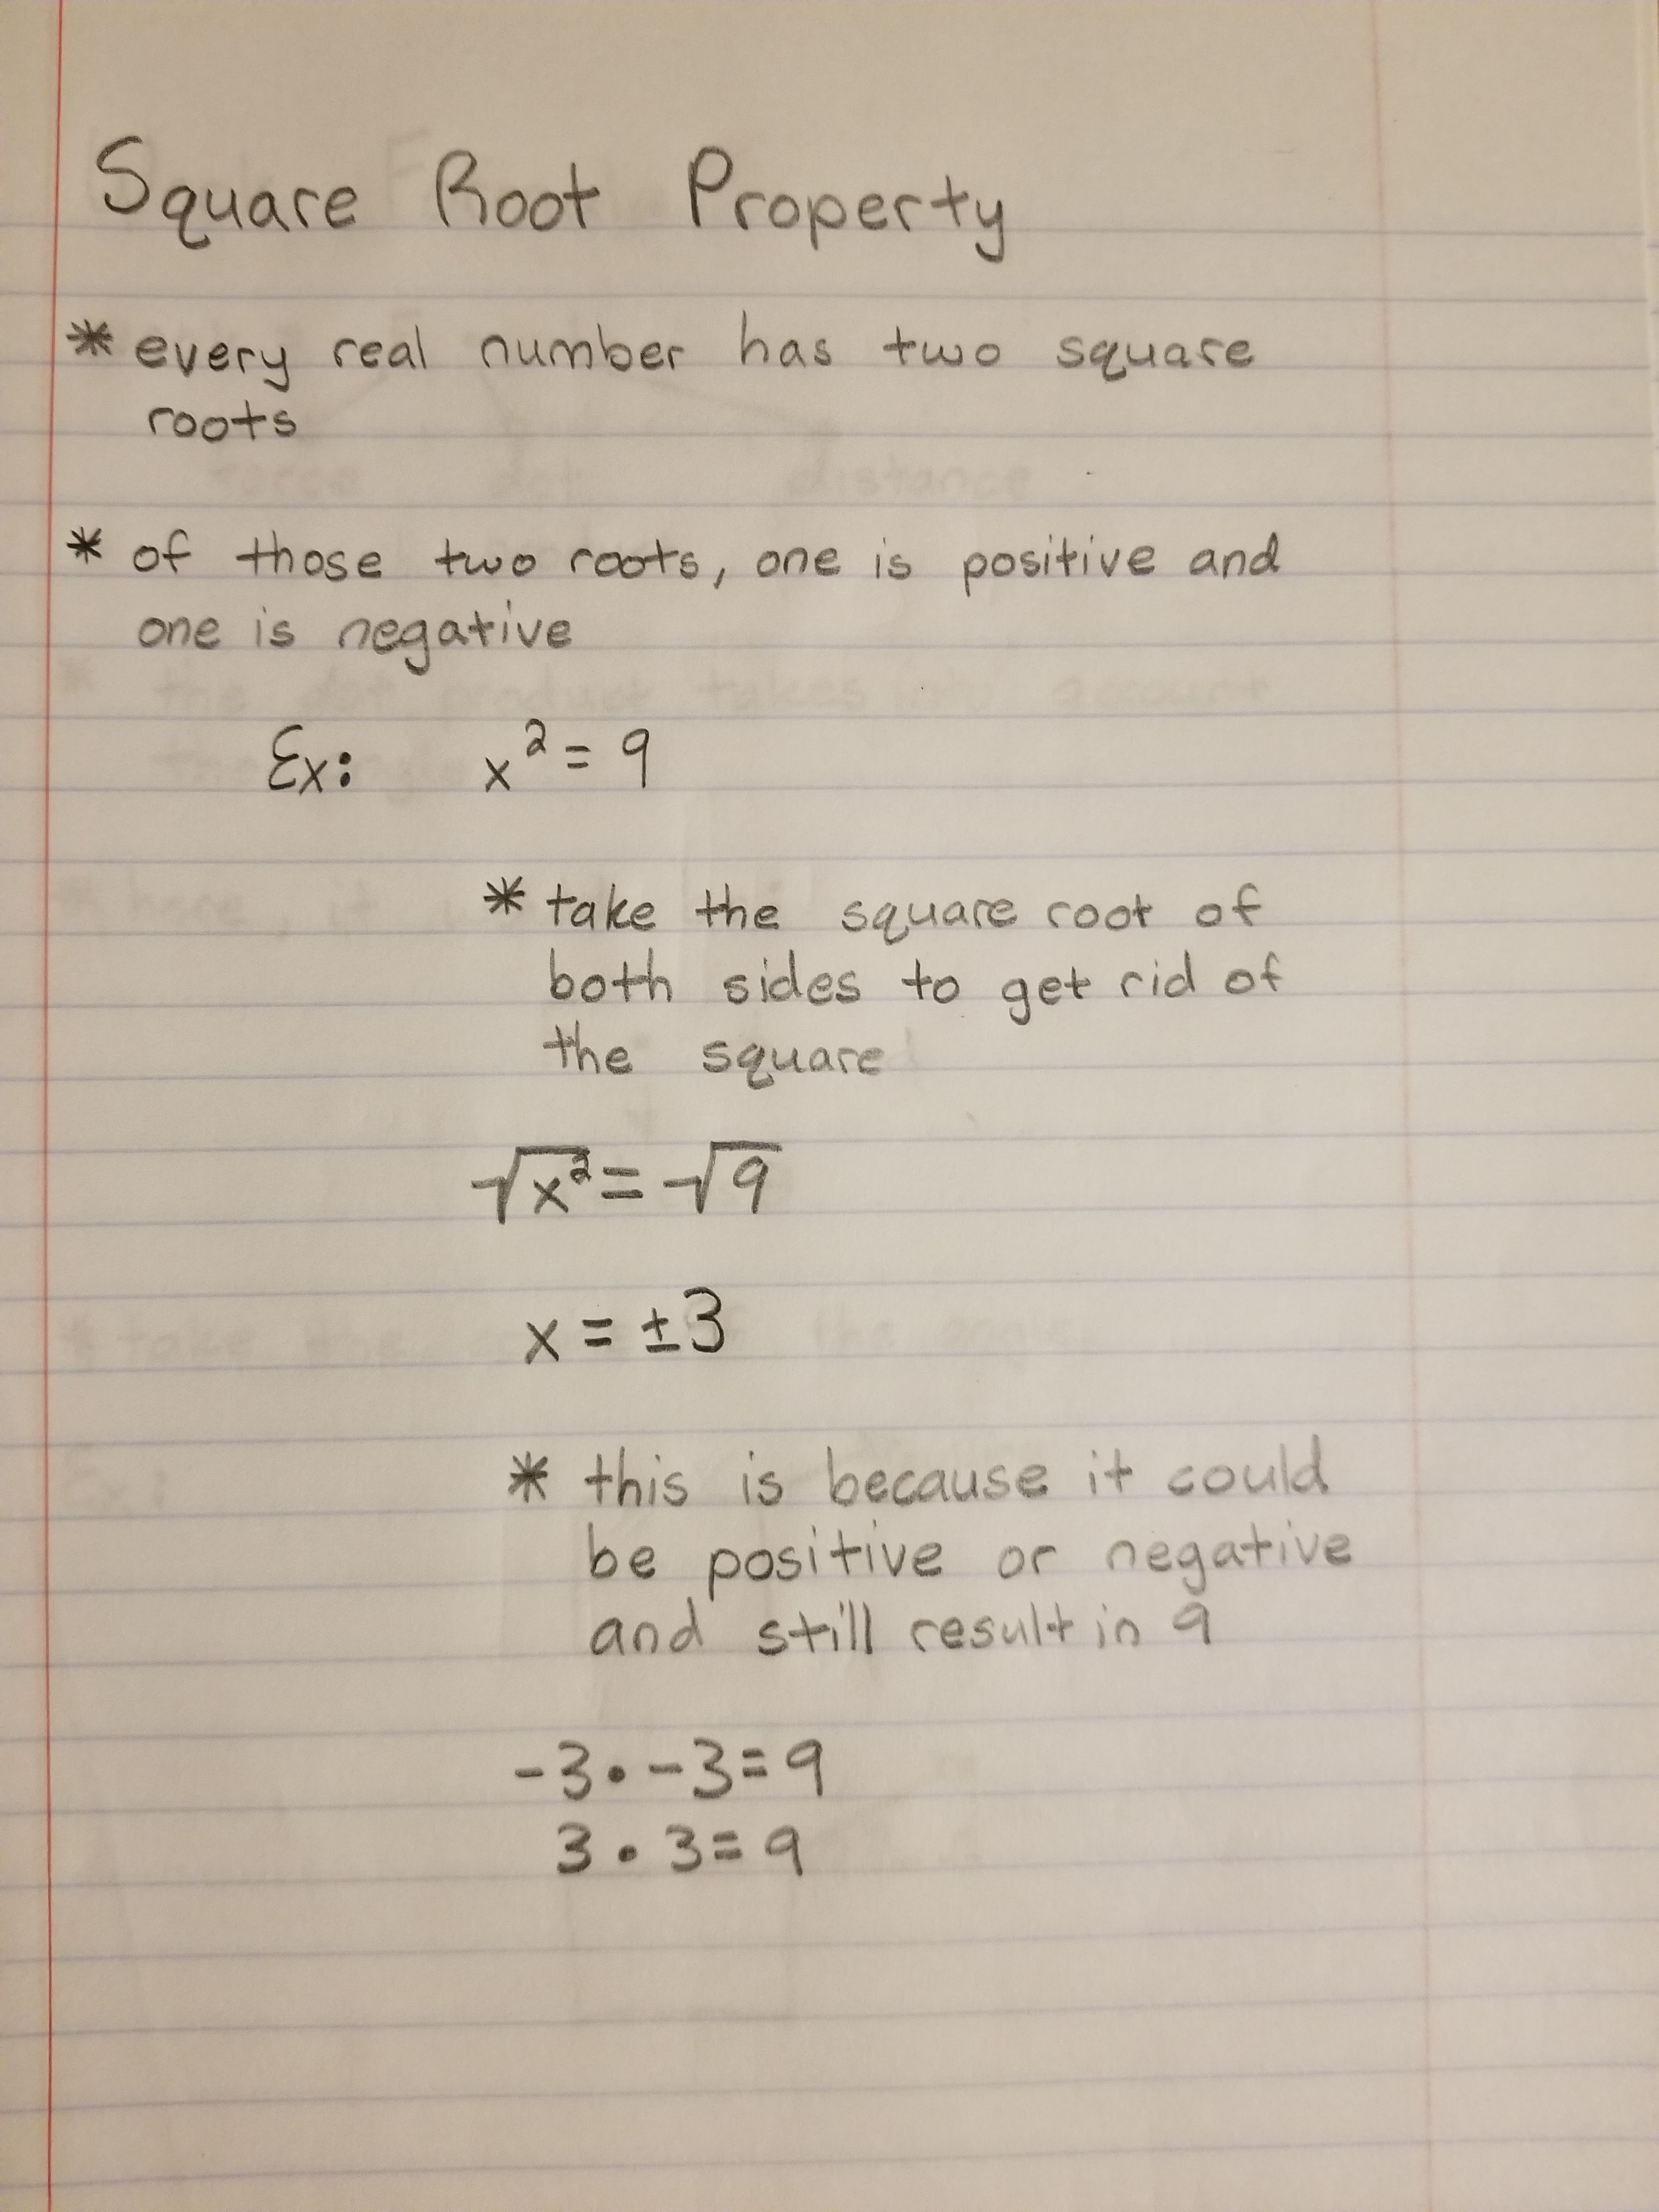 Square Root Property
* every real number has two square
roots
* of those two roots, one is positive and
one is negative
Ex: x² = 9
* take the square root of
both sides to get rid of
the square
√x² = √9
x = ±3
* this is because it could
be positive or negative
and still result in 9
-3 • -3 = 9
3 • 3 = 9